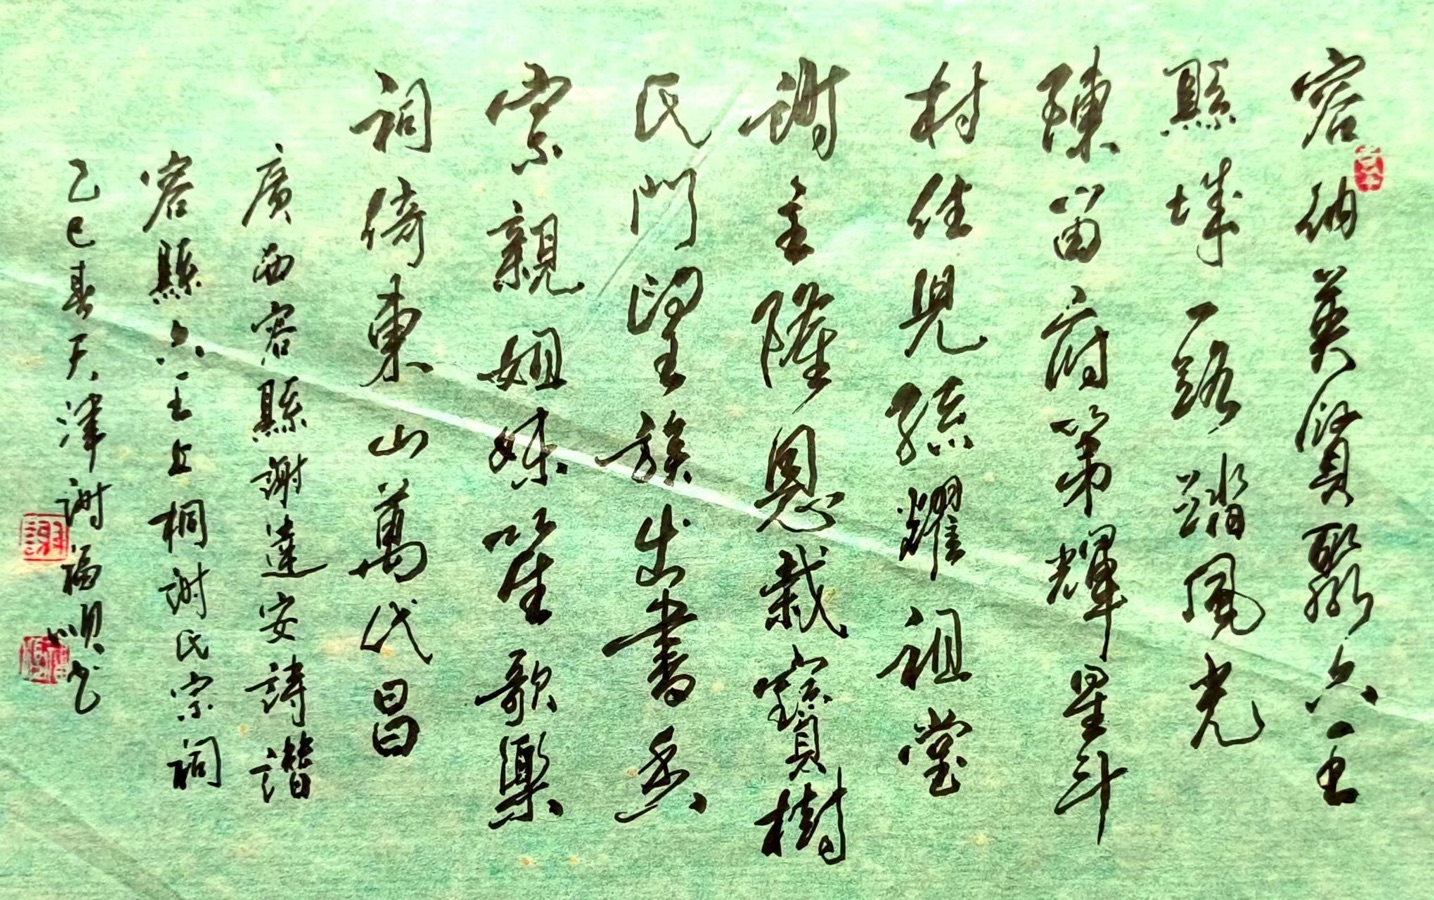 容納英賢聚六王
縣城一路踏風光
陳留府第輝星斗
村佳兒孫耀祖堂
謝主隆恩栽寶樹
氏門望族出書香
宗親姐妹笙歌樂
祠倚東山萬代昌
廣西容縣謝達安詩譜
容縣六王上桐謝氏宗祠
乙巳春天津謝福順書
謝